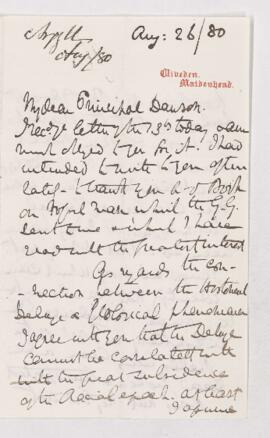 Argyll
Aug/80
Aug: 26/80
Cliveden.
Maidenhead.
My dear Principal Dawson.
I read yr letter of the 13th today & am
much obliged to you for it. I had
intended to write to you often
lately - to thank you for yr Book
on Fossil Man which the G.G.
sent me & which I have
read with the greatest interest
As regards the con-
-nection between the Historical
Deluge & Geological phenomena
I agree with you that the Deluge
cannot be correlated with
with the great subsidence
of the Glacial epoch. at least
I assume